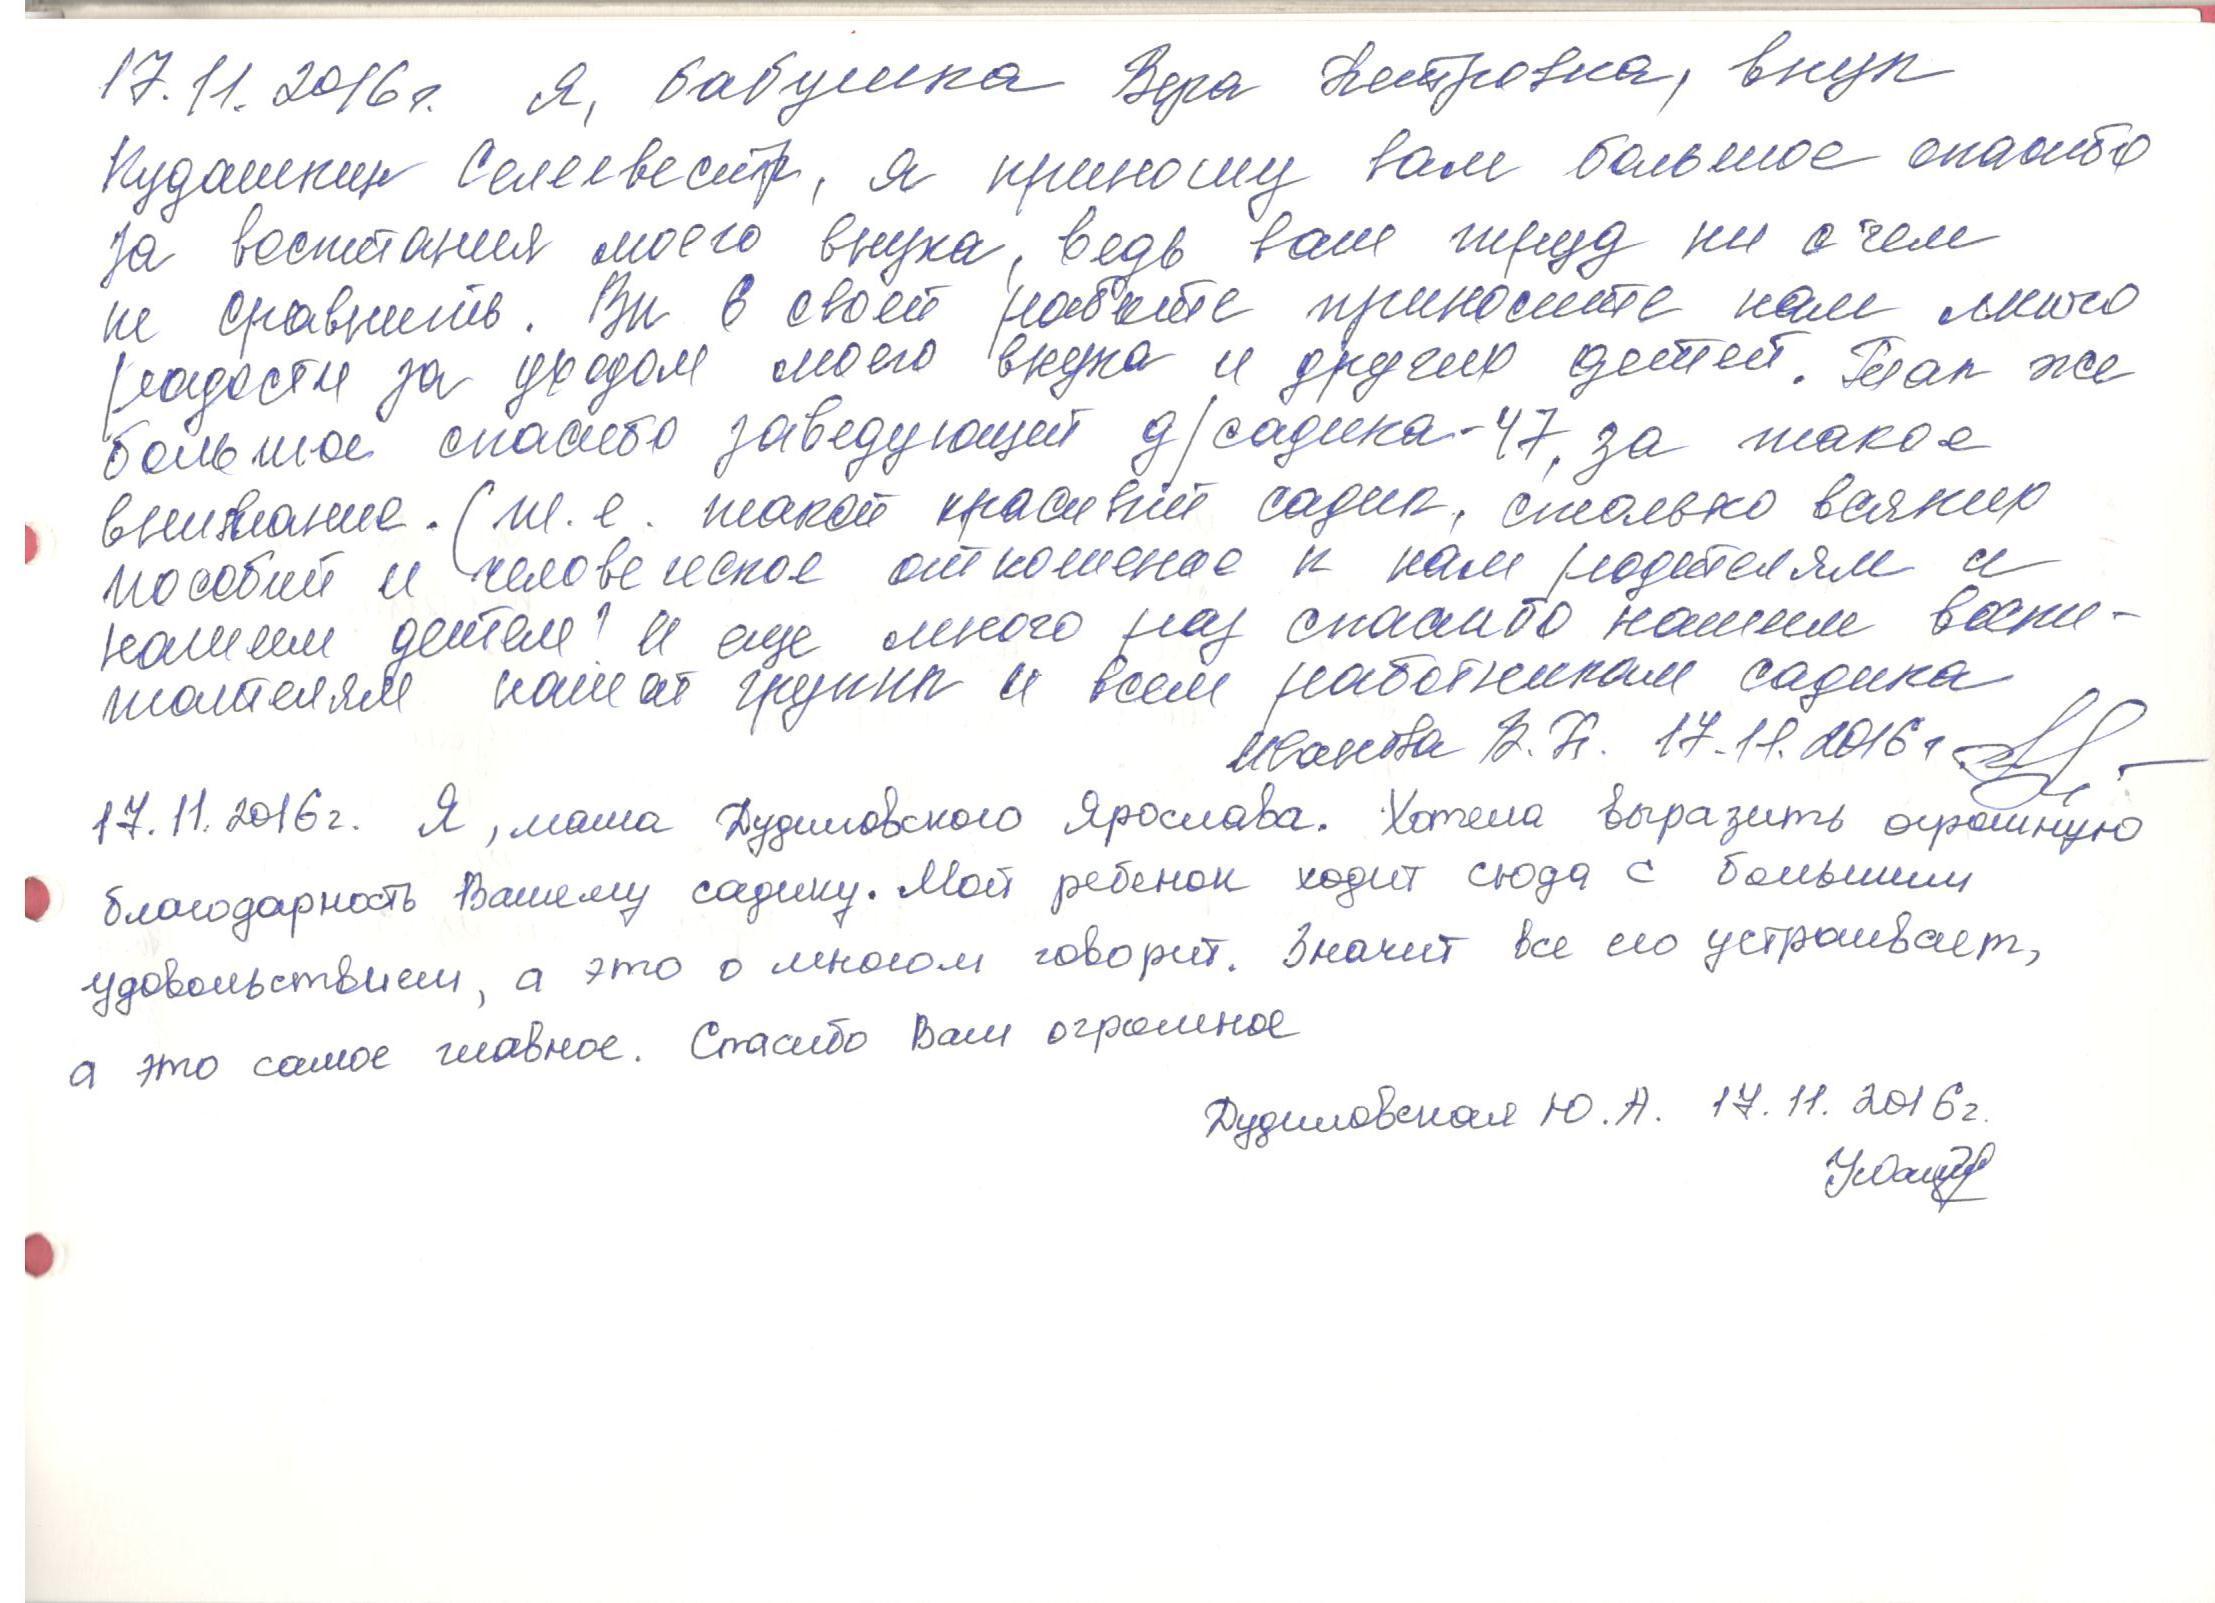 17.11.2016г. Я, бабушка Вера Петровна, внук
Кудашкин Селевестр, я приношу вам большое спасибо
за воспитания моего внука, ведь ваш труд ни с чем
не сравнить. Вы в своей работе приносите нам много
радости за уходом моего внука и других детей. Так же
большое спасибо заведующей д/садика-47, за такое
внимание. (т.е. такой красивый садик, столько всяких
пособий и человеческое отношение к нам родителям и
нашим детям! И еще много раз спасибо нашим воспи-
тателям нашей группы и всем работникам садика
Иванова В.П. 17.11.2016г
17.11.2016г. Я, мама Дудиловского Ярослава. Хотела выразить огромную
благодарность Вашему садику. Мой ребенок ходит сюда с большим
удовольствием, а это о многом говорит. Значит все его устраивает,
а это самое главное. Спасибо Вам огромное
Дудиловская Ю.А. 17.11.2016г.